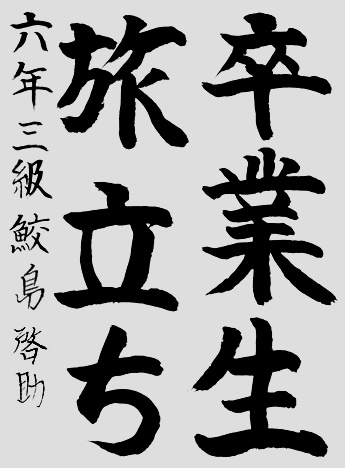 卒業生
旅立ち
六年三級鮫島啓助